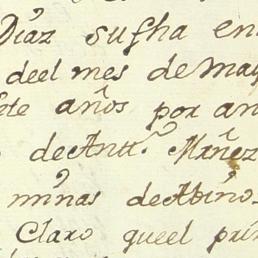 Diaz sufha en
deel mes de May
ete años por an
de Antt.º Mrñez
minas de Abiño
Claro queel pri